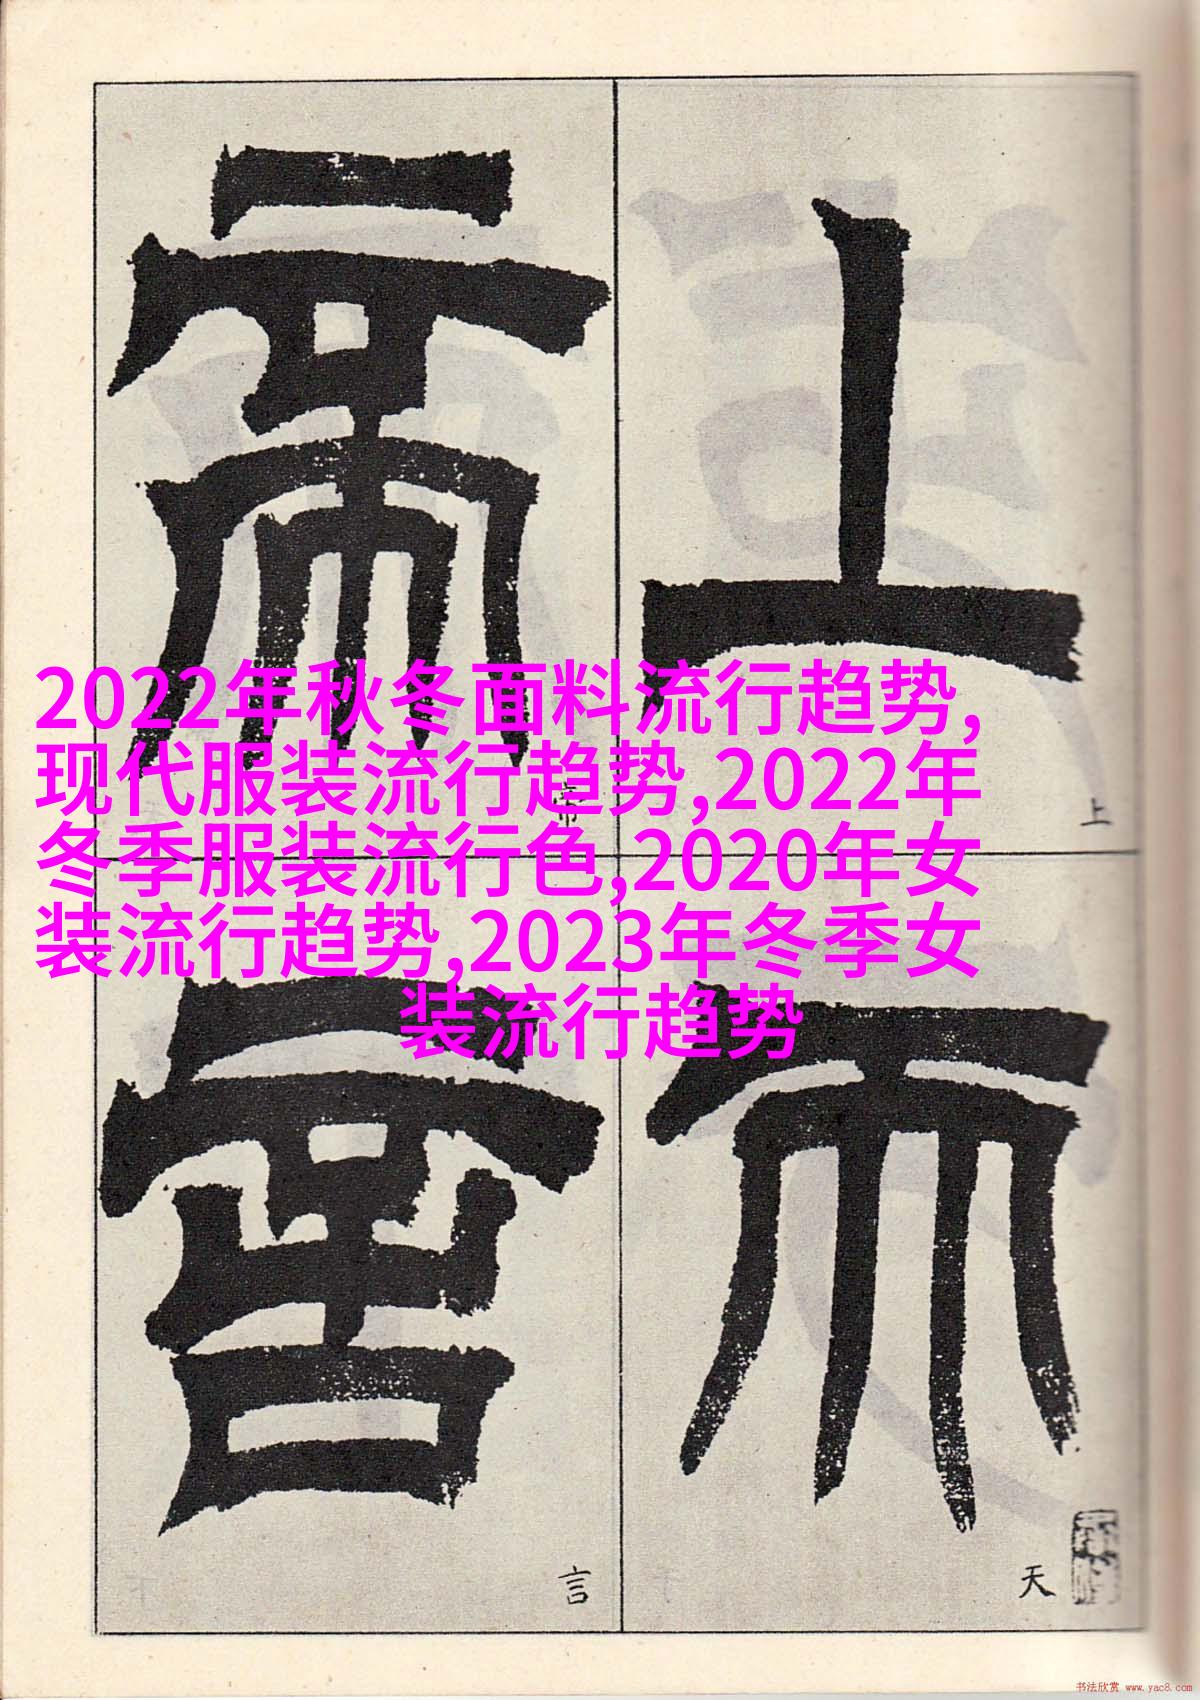 2022年秋冬面料流行趋势,
现代服装流行趋势,2022年
冬季服装流行色,2020年女
装流行趋势,2023年冬季女
装流行趋势
上
天
帝
言
书法欣赏 www.yac8.com